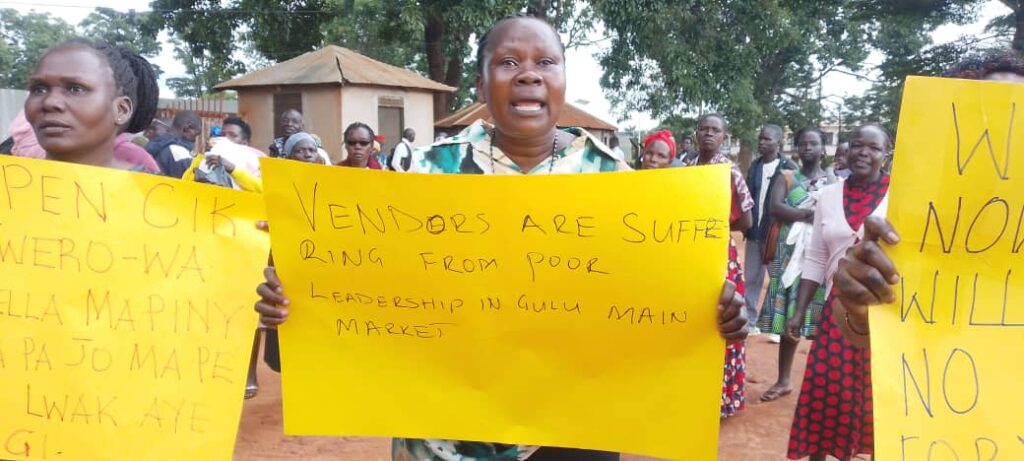 PEN CIK
WERO-WA
ELLA MAPINY
A PA JO MA PE
LWAK AYE
GI.
VENDORS ARE SUFFE-
RING FROM POOR
LEADERSHIP IN GULU MAIN
MARKET
W
NOW
WILL
NO
FOR